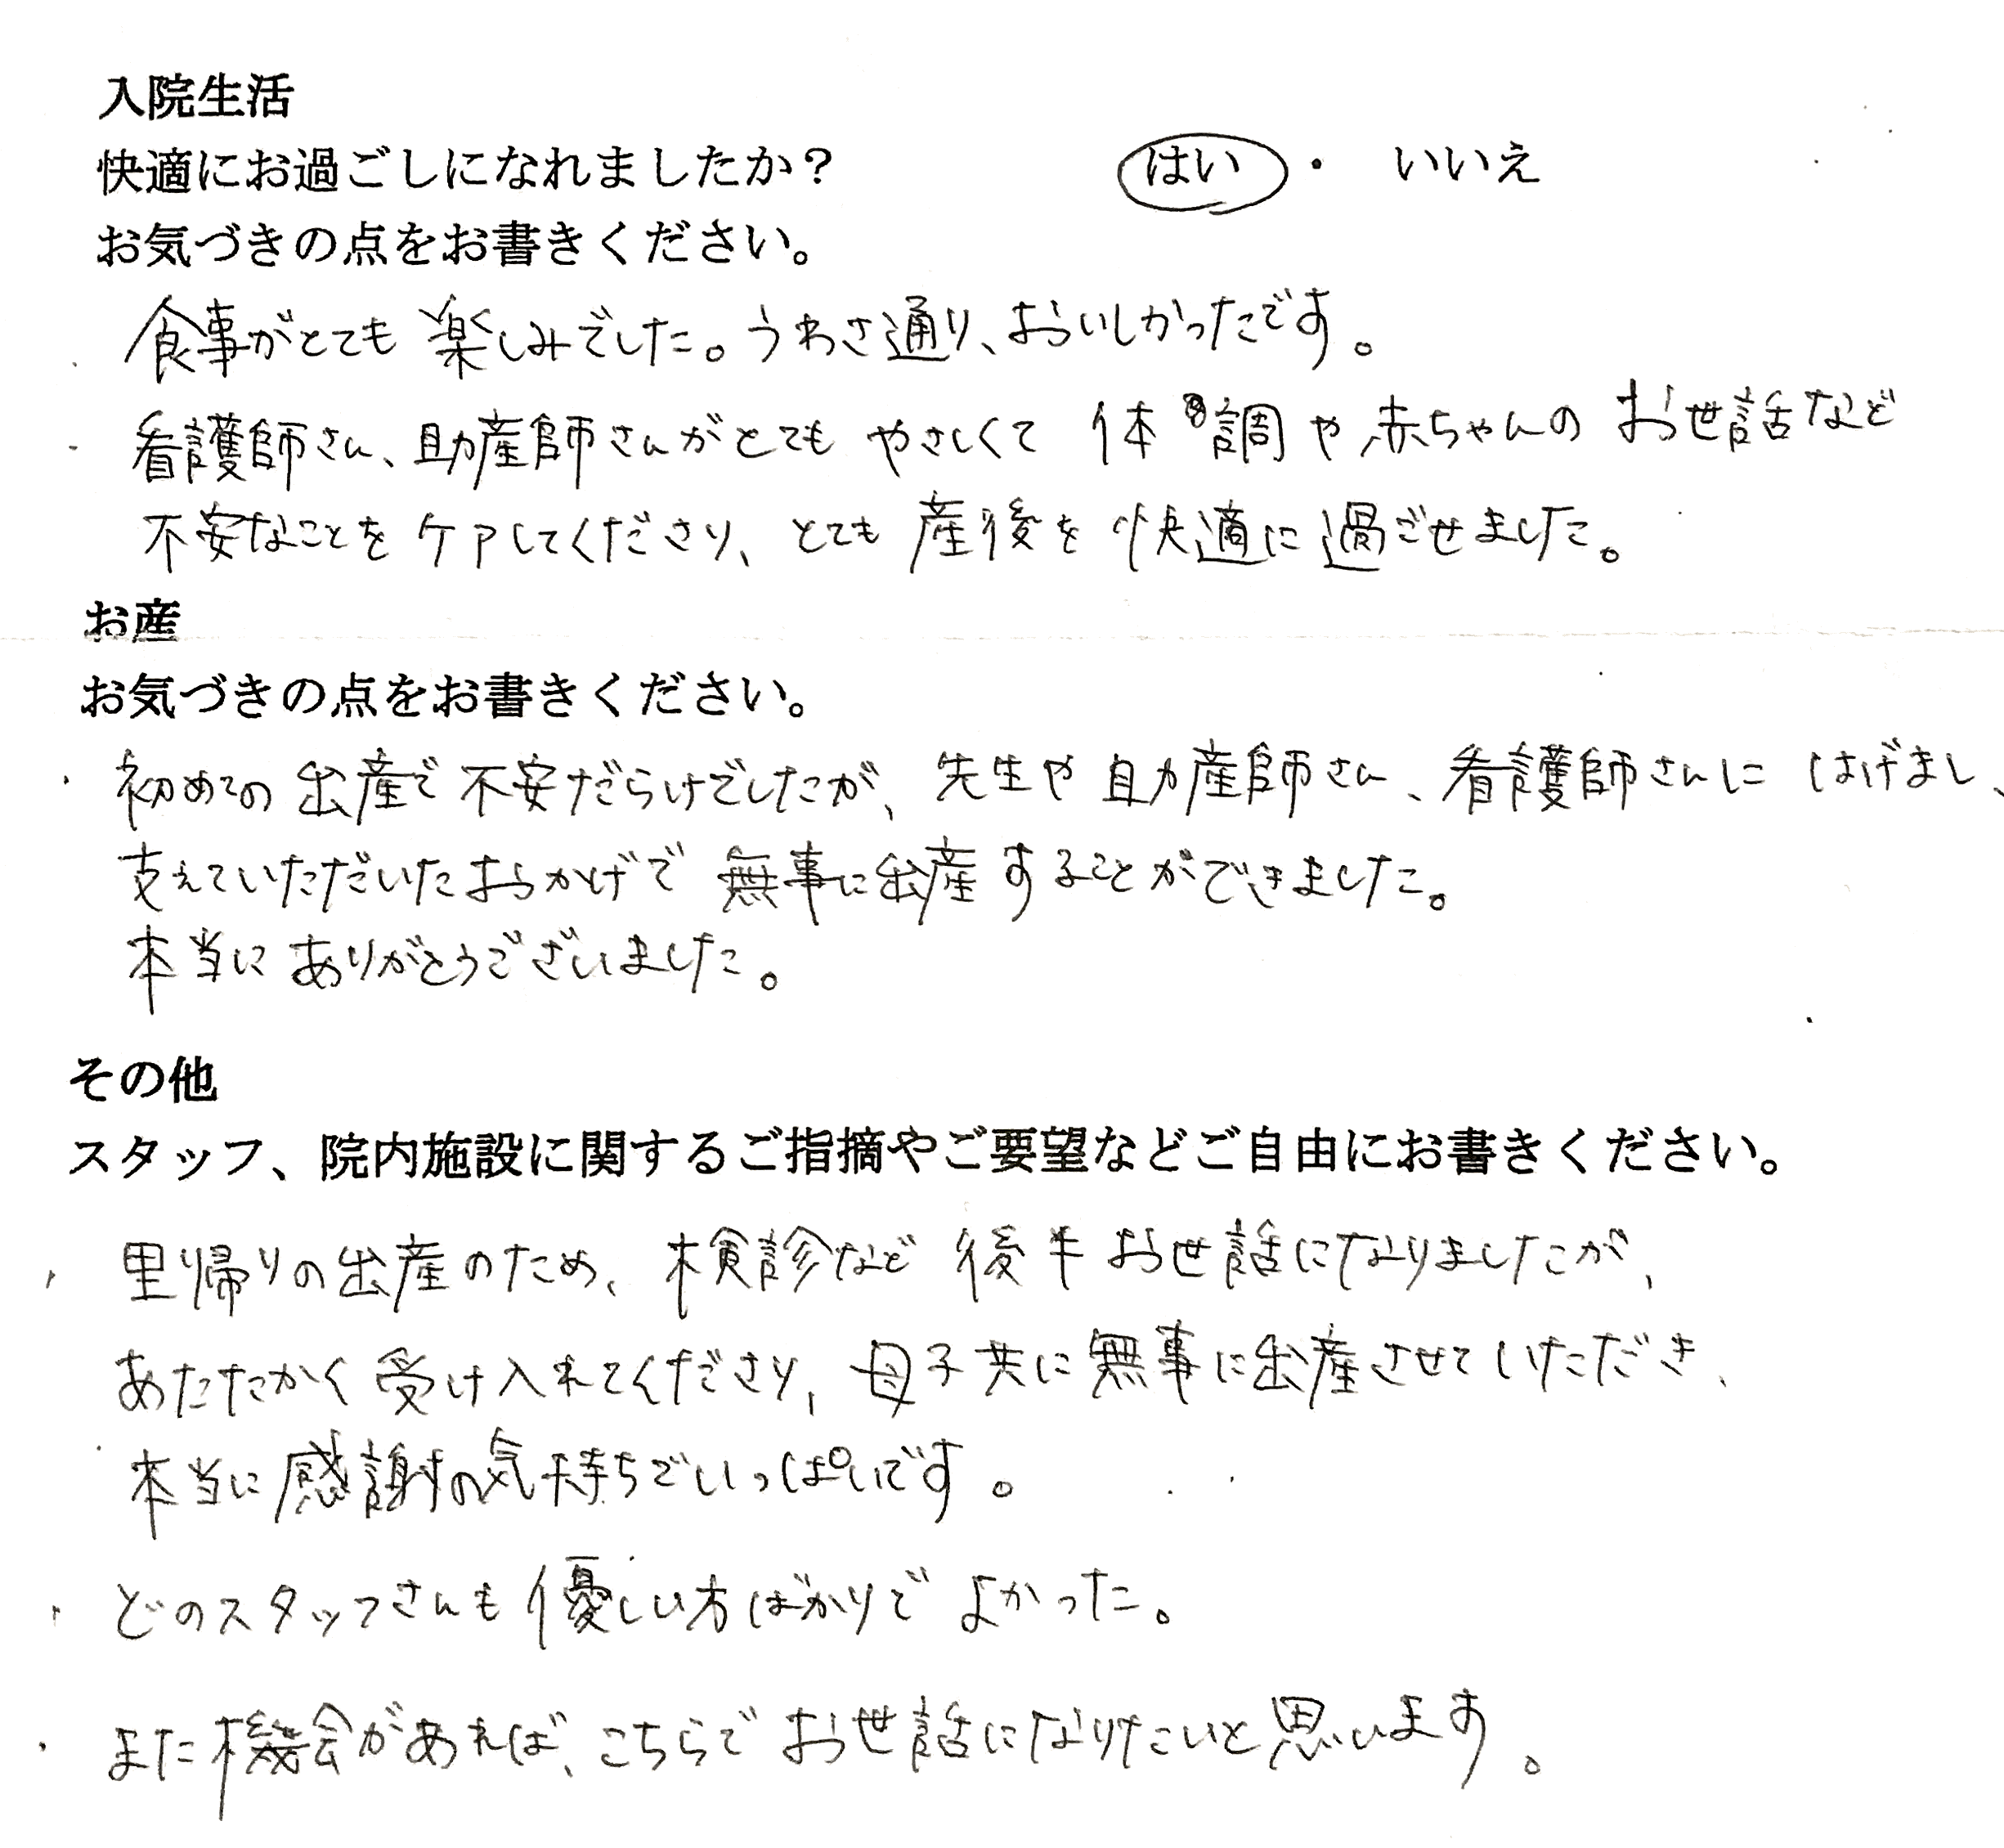 入院生活
快適にお過ごしになれましたか? はい ・ いいえ
お気づきの点をお書きください。
・食事がとても楽しみでした。うわさ通り、おいしかったです。
・看護師さん、助産師さんがとてもやさしくて体調や赤ちゃんのお世話など
不安なことをケアしてくださり、とても産後を快適に過ごせました。
お産
お気づきの点をお書きください。
・初めての出産で不安だらけでしたが、先生や助産師さん、看護師さんにはげまし、
支えていただいたおかげで無事に出産することができました。
本当にありがとうございました。
その他
スタッフ、院内施設に関するご指摘やご要望などご自由にお書きください。
・里帰りの出産のため、検診など後半お世話になりましたが、
あたたかく受け入れてくださり、母子共に無事に出産させていただき、
本当に感謝の気持ちでいっぱいです。
・どのスタッフさんも優しい方ばかりでよかった。
・また機会があれば、こちらでお世話になりたいと思います。